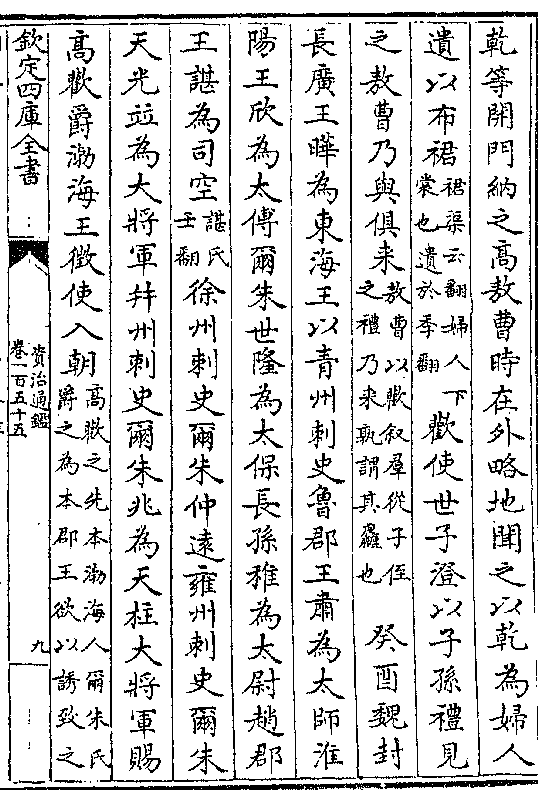 乾等開門納之高敖曹時在外略地聞之以乾為婦人
遺以布裙裙渠云翻婦人下裳也遺於季翻歡使世子澄以子孫禮見
之敖曹乃與俱来敖曹以歡叙羣從子侄之禮乃来孰謂其麤也癸酉魏封
長廣王曄為東海王以青州刺史魯郡王肅為太師淮
陽王欣為太傅爾朱世隆為太保長孫稚為太尉趙郡
王諶為司空諶氏壬翻徐州刺史爾朱仲遠雍州刺史爾朱
天光並為大將軍并州刺史爾朱兆為天柱大將軍賜
高歡爵渤海王徵使入朝高歡之先本渤海人爾朱氏爵之為本郡王欲以誘致之
欽定四庫全書
資治通鑑
卷一百五十五
九